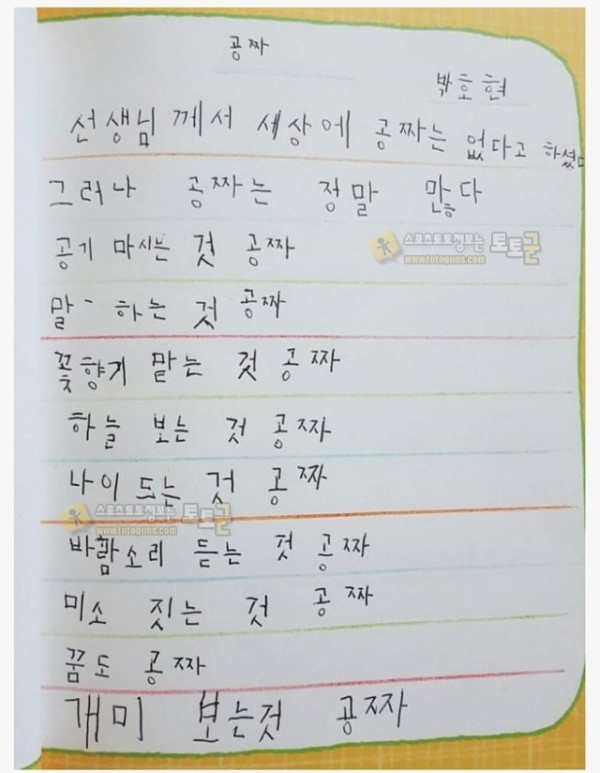 공짜
박호현
선생님 께서 세상에 공짜는 없다고 하셨다
그러나 공짜는 정말 많다
공기 마시는 것 공짜
스포스토토정보는 토토군
www.totoguns.com
말 하는 것 공짜
꽃향기 맡는 것 공짜
하늘 보는 것 공짜
나이 드는 것 공짜
스포스토토정보는 토토군
www.totoguns.com
바람소리 듣는 것 공짜
미소 짓는 것 공짜
꿈도 공짜
개미 보는것 공짜